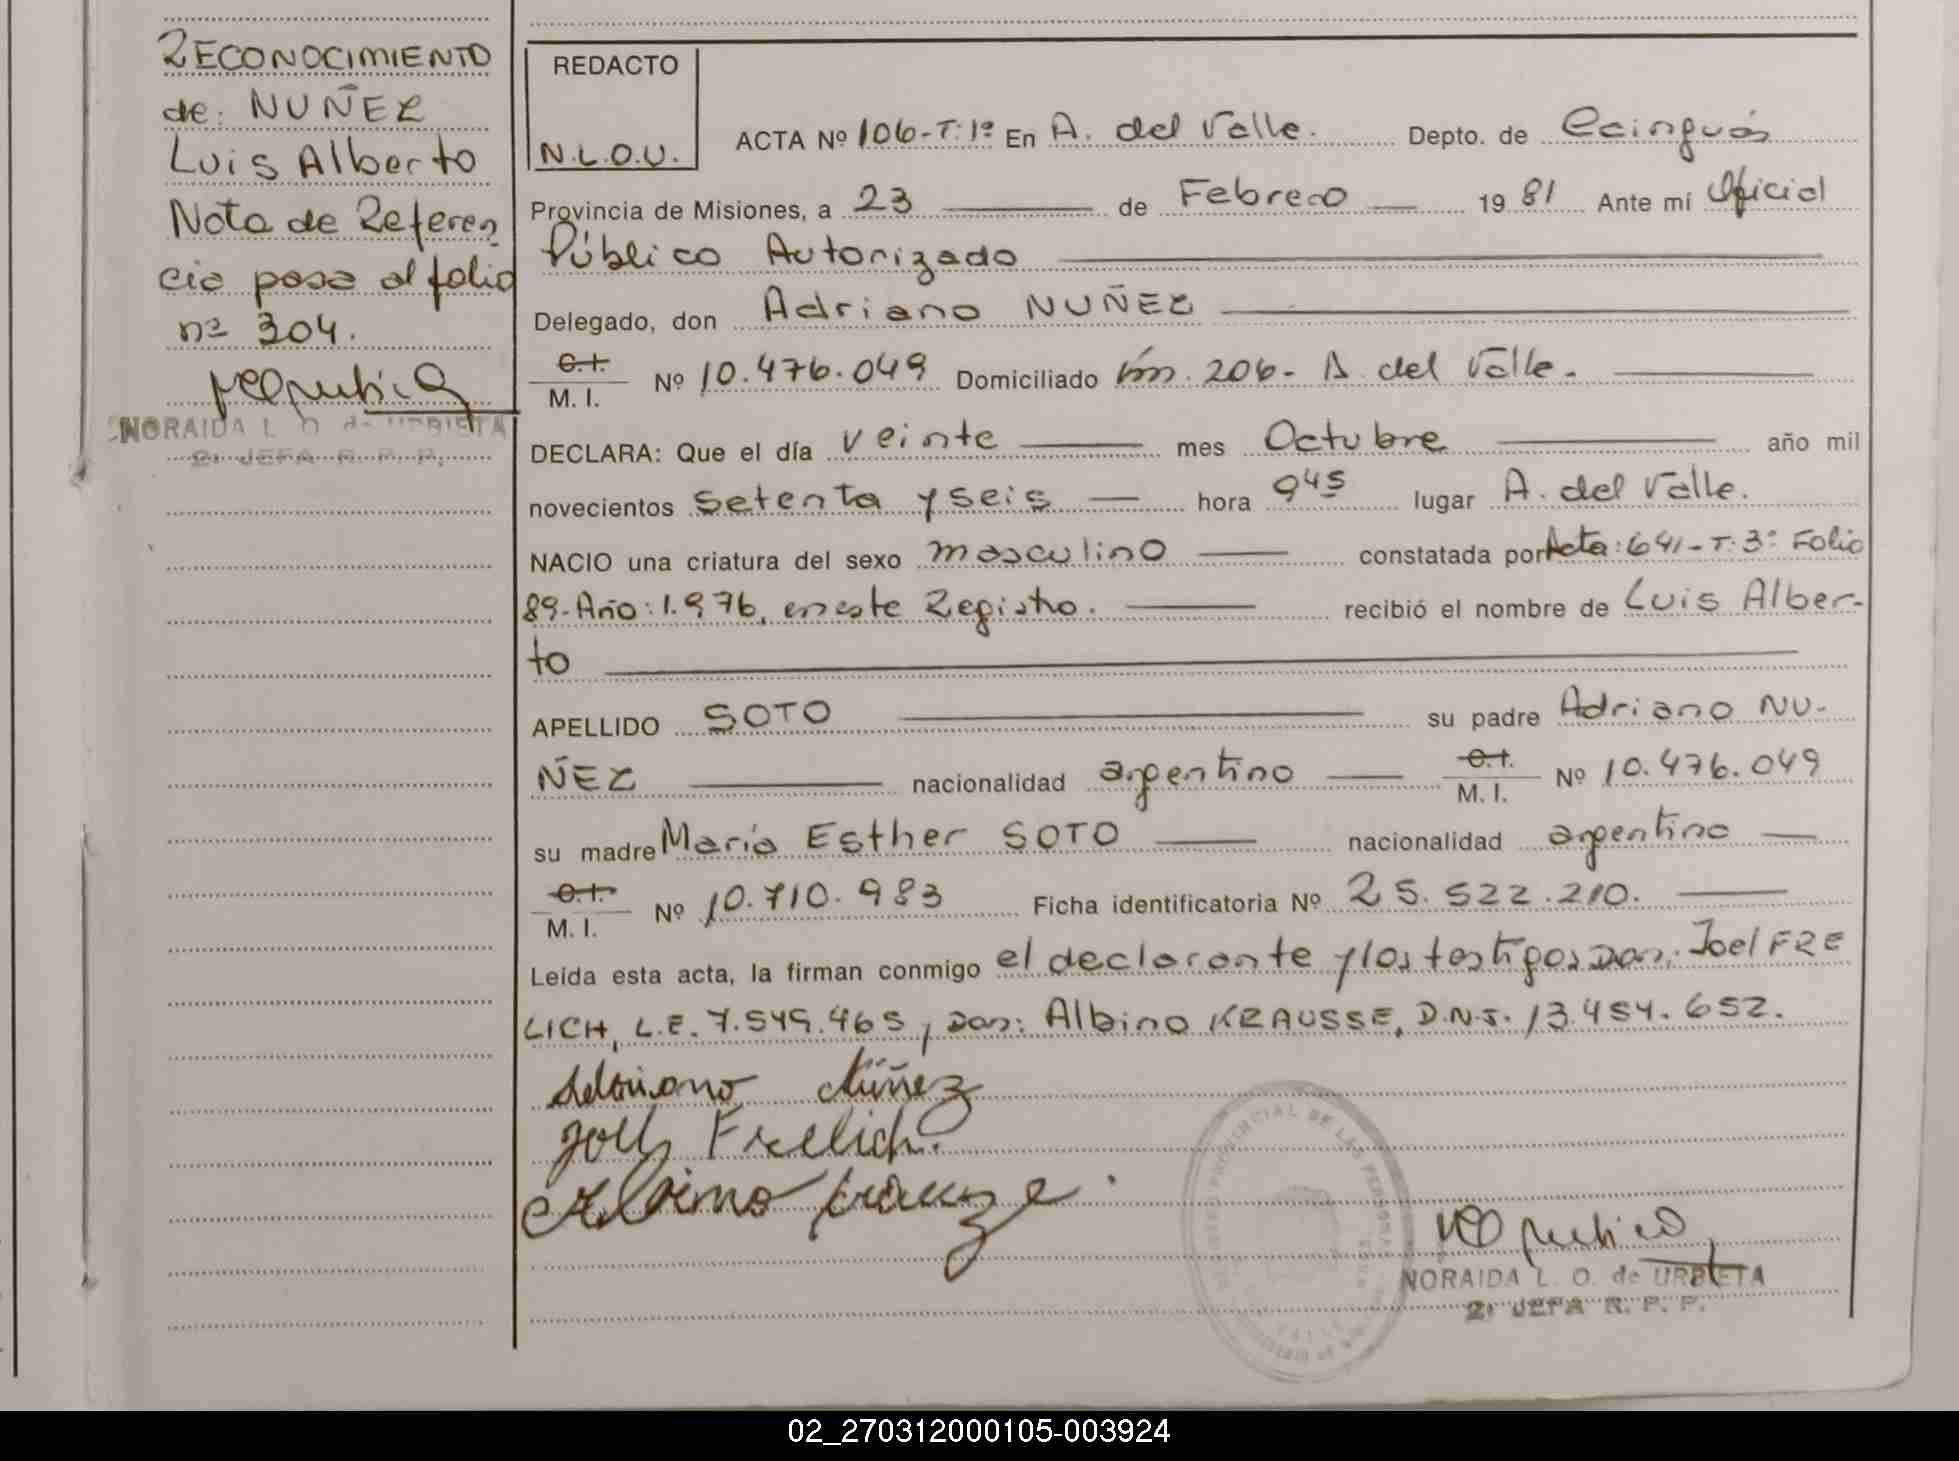 RECONOCIMIENTO
de: NUÑEZ
Luis Alberto
Nota de Referen
cia pasa al folio
nº 304.
NORAIDA L. O. de URBIETA
2ª JEFA R. P. P.
REDACTO
N.L.O.U.
ACTA Nº 106-T:1º En A. del Valle. Depto. de Cainguás
Provincia de Misiones, a 23 de Febrero 1981 Ante mí Oficial
Público Autorizado
Delegado, don Adriano NUÑEZ
C.I.
M. I. Nº 10.476.049 Domiciliado Km. 206- A. del Valle.
DECLARA: Que el día veinte mes Octubre año mil
novecientos setenta y seis hora 9 45 lugar A. del Valle.
NACIO una criatura del sexo masculino constatada por Acta: 641-T:3º Folio
89-Año: 1.976, en este Registro. recibió el nombre de Luis Alber-
to
APELLIDO SOTO su padre Adriano NU-
ÑEZ nacionalidad argentino C.I.
M. I. Nº 10.476.049
su madre María Esther SOTO nacionalidad argentino
C.I.
M. I. Nº 10.710.983 Ficha identificatoria Nº 25.522.210.
Leída esta acta, la firman conmigo el declarante y los testigos Don: Joel FRE
LICH, L.E. 7.549.465, y Don: Albino KRAUSSE, D.N.I. 13.454.652.
Adriano Núñez
Frelich.
Albino Krausse
REGISTRO PROVINCIAL DE LAS PERSONAS
NORAIDA L. O. de URBIETA
2ª JEFA R. P. P.
02_270312000105-003924